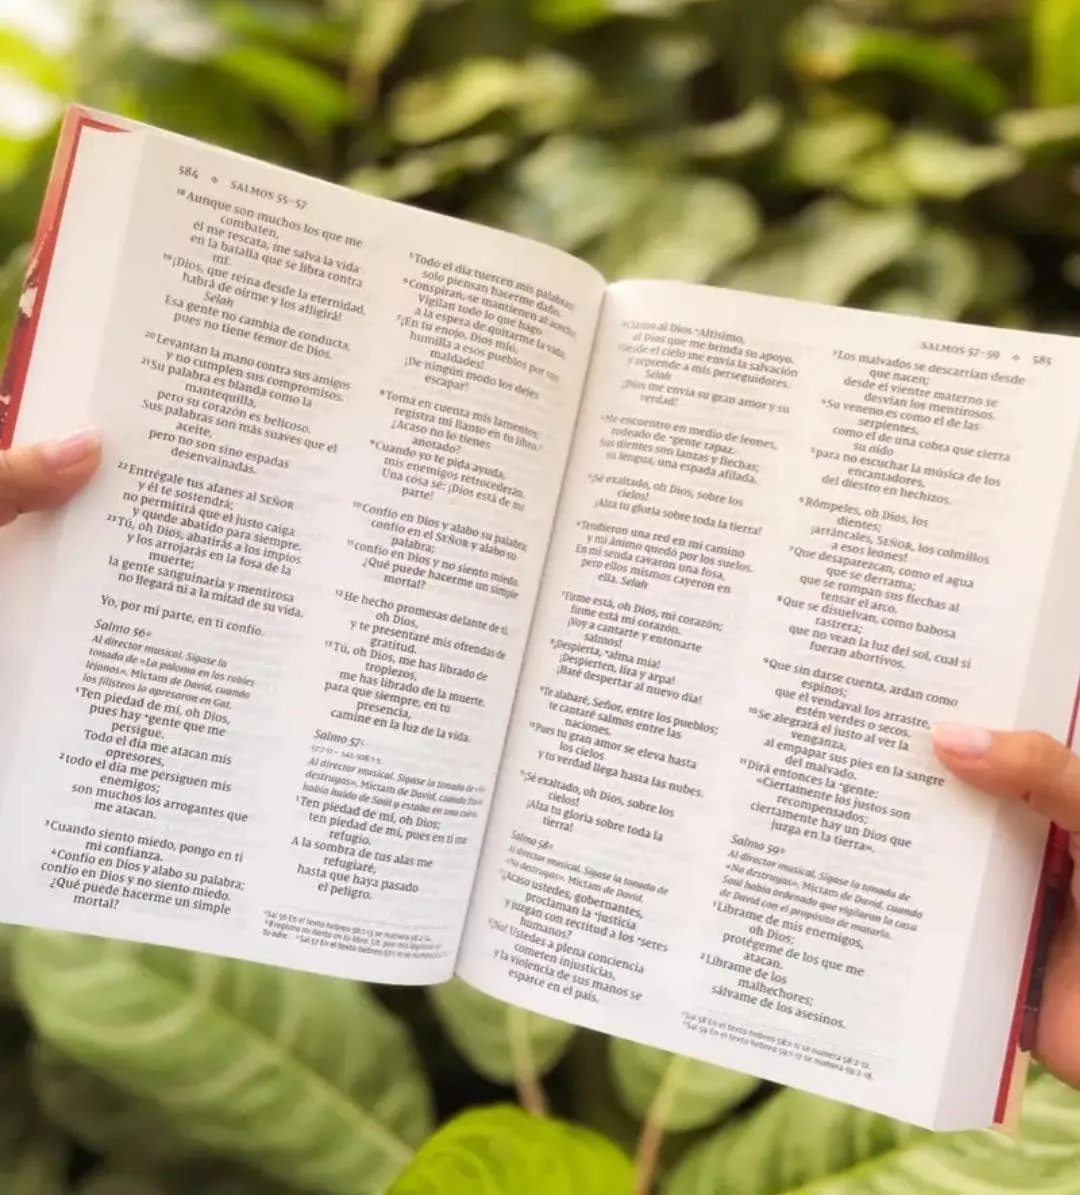 584 ✧ SALMOS 55–57
¹⁸ Aunque son muchos los que me
combaten,
él me rescata, me salva la vida
en la batalla que se libra contra
mí.
¹⁹ ¡Dios, que reina desde la eternidad,
habrá de oírme y los afligirá!
Selah
Esa gente no cambia de conducta,
pues no tiene temor de Dios.
²⁰ Levantan la mano contra sus amigos
y no cumplen sus compromisos.
²¹ Su palabra es blanda como la
mantequilla,
pero su corazón es belicoso.
Sus palabras son más suaves que el
aceite,
pero no son sino espadas
desenvainadas.
²² Entrégale tus afanes al SEÑOR
y él te sostendrá;
no permitirá que el justo caiga
y quede abatido para siempre.
²³ Tú, oh Dios, abatirás a los impíos
y los arrojarás en la fosa de la
muerte;
la gente sanguinaria y mentirosa
no llegará ni a la mitad de su vida.
Yo, por mi parte, en ti confío.
Salmo 56
Al director musical. Sígase la
tonada de «La paloma en los robles
lejanos». Mictam de David, cuando
los filisteos lo apresaron en Gat.
¹ Ten piedad de mí, oh Dios,
pues hay *gente que me
persigue.
Todo el día me atacan mis
opresores,
² todo el día me persiguen mis
enemigos;
son muchos los arrogantes que
me atacan.
³ Cuando siento miedo, pongo en ti
mi confianza.
⁴ Confío en Dios y alabo su palabra;
confío en Dios y no siento miedo.
¿Qué puede hacerme un simple
mortal?
⁵ Todo el día tuercen mis palabras;
solo piensan hacerme daño.
⁶ Conspiran, se mantienen al acecho;
Vigilan todo lo que hago
a la espera de quitarme la vida.
⁷ ¡En tu enojo, Dios mío,
humilla a esos pueblos por sus
maldades!
¡De ningún modo los dejes
escapar!
⁸ Toma en cuenta mis lamentos;
registra mi llanto en tu libro.
¿Acaso no lo tienes
anotado?
⁹ Cuando yo te pida ayuda,
mis enemigos retrocederán.
Una cosa sé: ¡Dios está de mi
parte!
¹⁰ Confío en Dios y alabo su palabra;
confío en el SEÑOR y alabo su
palabra;
¹¹ confío en Dios y no siento miedo.
¿Qué puede hacerme un simple
mortal?
¹² He hecho promesas delante de ti,
oh Dios,
y te presentaré mis ofrendas de
gratitud.
¹³ Tú, oh Dios, me has librado de
tropiezos,
me has librado de la muerte,
para que siempre, en tu
presencia,
camine en la luz de la vida.
Salmo 57
57:7-11 – SAL 108:1-5
Al director musical. Sígase la tonada de
destruyas». Mictam de David, cuando David
había huido de Saúl y estaba en una cueva.
¹ Ten piedad de mí, oh Dios;
ten piedad de mí, pues en ti me
refugio.
A la sombra de tus alas me
refugiaré,
hasta que haya pasado
el peligro.
Sal 56 En el texto hebreo 56:1-13 se numera 56:2-14.
registra mi llanto en tu libro. Lit.
tu odre. Sal 57 En el texto hebreo 57:1-11 se numera
SALMOS 57–59 ✧ 585
² Clamo al Dios *Altísimo,
al Dios que me brinda su apoyo.
³ Desde el cielo me envía la salvación
y reprende a mis perseguidores.
Selah
¡Dios me envía su gran amor y su
verdad!
⁴ Me encuentro en medio de leones,
rodeado de *gente rapaz.
Sus dientes son lanzas y flechas;
su lengua, una espada afilada.
⁵ ¡Sé exaltado, oh Dios, sobre los
cielos!
¡Alza tu gloria sobre toda la tierra!
⁶ Tendieron una red en mi camino
y mi ánimo quedó por los suelos.
En mi senda cavaron una fosa,
pero ellos mismos cayeron en
ella. Selah
⁷ Firme está, oh Dios, mi corazón;
firme está mi corazón.
¡Voy a cantarte y entonarte
salmos!
⁸ ¡Despierta, *alma mía!
¡Despierten, lira y arpa!
¡Haré despertar al nuevo día!
⁹ Te alabaré, Señor, entre los pueblos;
te cantaré salmos entre las
naciones.
¹⁰ Pues tu gran amor se eleva hasta
los cielos
y tu verdad llega hasta las nubes.
¹¹ ¡Sé exaltado, oh Dios, sobre los
cielos!
¡Alza tu gloria sobre toda la
tierra!
Salmo 58
Al director musical. Sígase la tonada de
«No destruyas». Mictam de David.
¹ ¿Acaso ustedes, gobernantes,
proclaman la *justicia
y juzgan con rectitud a los *seres
humanos?
² ¡No! Ustedes a plena conciencia
cometen injusticias,
y la violencia de sus manos se
esparce en el país.
³ Los malvados se descarrían desde
que nacen;
desde el vientre materno se
desvían los mentirosos.
⁴ Su veneno es como el de las
serpientes,
como el de una cobra que cierra
su oído
⁵ para no escuchar la música de los
encantadores,
del diestro en hechizos.
⁶ Rómpeles, oh Dios, los
dientes;
¡arráncales, SEÑOR, los colmillos
a esos leones!
⁷ Que desaparezcan, como el agua
que se derrama;
que se rompan sus flechas al
tensar el arco.
⁸ Que se disuelvan, como babosa
rastrera;
que no vean la luz del sol, cual si
fueran abortivos.
⁹ Que sin darse cuenta, ardan como
espinos;
que el vendaval los arrastre,
estén verdes o secos.
¹⁰ Se alegrará el justo al ver la
venganza,
al empapar sus pies en la sangre
del malvado.
¹¹ Dirá entonces la *gente:
«Ciertamente los justos son
recompensados;
ciertamente hay un Dios que
juzga en la tierra».
Salmo 59
Al director musical. Sígase la tonada de
«No destruyas». Mictam de David, cuando
Saúl había ordenado que vigilaran la casa
de David con el propósito de matarlo.
¹ Líbrame de mis enemigos,
oh Dios;
protégeme de los que me
atacan.
² Líbrame de los
malhechores;
sálvame de los asesinos.
Sal 58 En el texto hebreo 58:1-11 se numera 58:2-12.
Sal 59 En el texto hebreo 59:1-17 se numera 59:2-18.